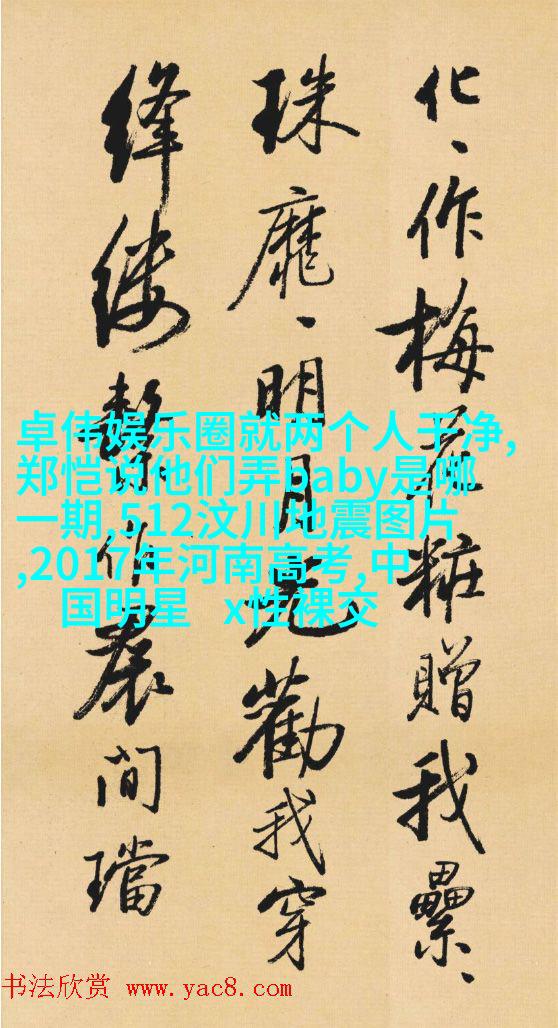 化、作梅花粧贈我纍、
珠靡、明月光勸我穿
絳縷繫作裠間璫
卓伟娱乐圈就两个人干净,
郑恺说他们弄baby是哪
一期,512汶川地震图片
,2017年河南高考,中
国明星 x性裸交
书法欣赏 www.yac8.com